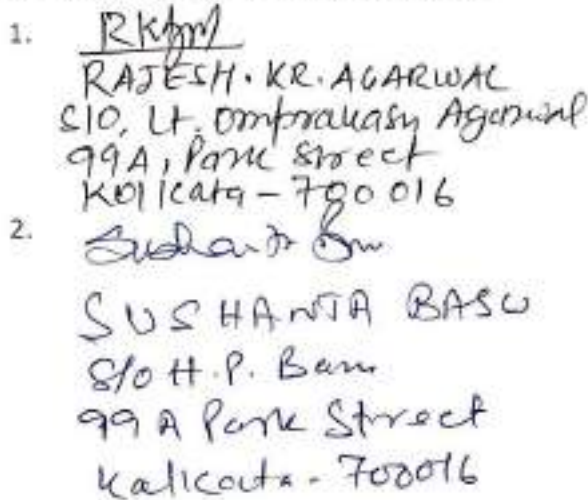 1.
RAJESH. KR. AGARWAL
S/O, Lt. Omprakash Agarwal
99A, Park Street
Kolkata - 700016
2. Sushanta Basu
SUSHANTA BASU
S/o H.P. Basu
99 A Park Street
Kalicauta - 700016